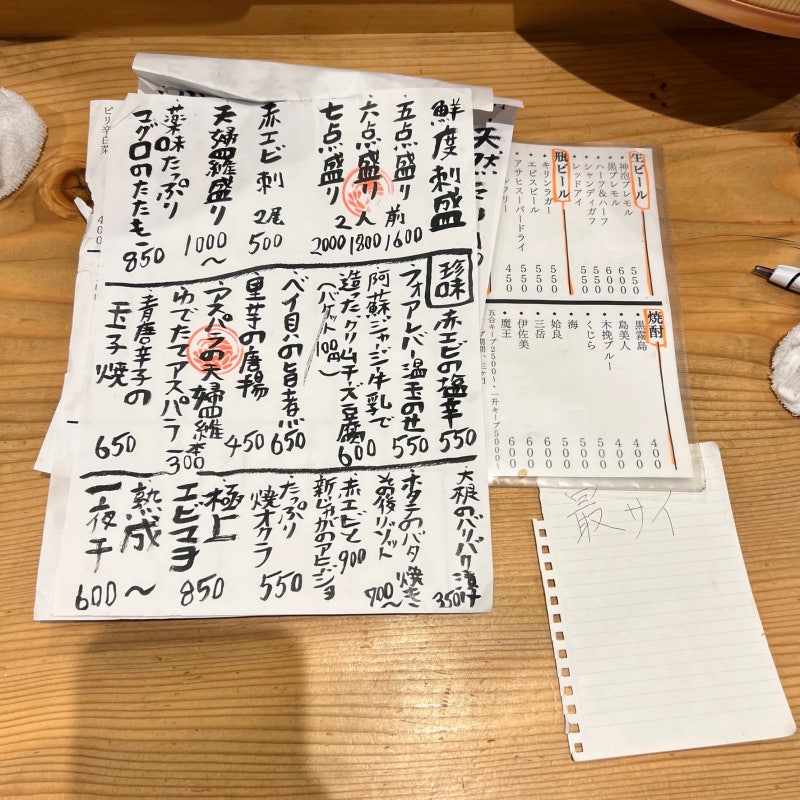 鮮度刺盛
五点盛り 二人前 1600
六点盛り 1800
七点盛り 2000
赤エビ刺 2尾 500
天婦羅盛り 1000〜
薬味たっぷり
マグロのたたき 850
珍味
赤エビの塩辛 550
フォアレバー温玉のせ 550
阿蘇ジャージー牛乳で
造ったクリームチーズ豆腐 600
(バゲット100円)
ベイ貝の旨煮 650
里芋の唐揚 450
アスパラの天婦羅
ゆでたてアスパラ 一本300
青唐辛子の
玉子焼 650
大根のバリバリ漬け 350
ホタテのバター焼き
その後リゾット 700〜
赤エビと 900
新じゃがのアヒージョ
たっぷり
焼オクラ 550
極上
エビマヨ 850
熟成
一夜干 600〜
ピリ辛白菜
400
天然
生ビール
神泡プレモル 550
黒プレモル 600
ハーフ&ハーフ 600
シャンディガフ 550
レッドアイ 550
瓶ビール
キリンラガー 550
エビスビール 550
アサヒスーパードライ 550
フリー 450
焼酎
黒霧島 400
島美人 400
木挽ブルー 400
くじら 500
海 500
姶良 500
三岳 600
伊佐美 600
魔王 600
五合キープ2500〜・一升キープ5000
最サイ